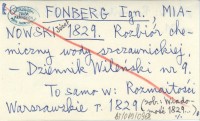 FONBERG Ign., MIA-
NOWSKI 1829. Rozbiór che-
miczny wody szczawnickiej.
— Dziennik Wileński nr 9.
To samo w: Rozmaitości
Warszawskie r. 1829